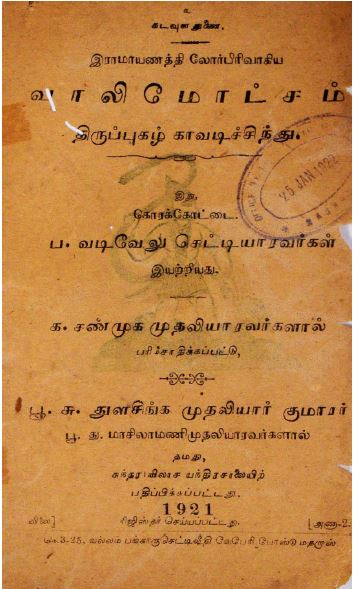 உ
கடவுள் துணை.
இராமாயணத்தி லோர்பிரிவாகிய
வாலிமோட்சம்
திருப்புகழ் காவடிச்சிந்து.
25 JAN 1922
இது,
கோரக்கோட்டை.
ப. வடிவேலு செட்டியாரவர்கள்
இயற்றியது.
க. சண்முக முதலியாரவர்களால்
பரிசோதிக்கப்பட்டு,
பூ. சு. துளசிங்க முதலியார் குமாரர்
பூ. து. மாசிலாமணிமுதலியாரவர்களால்
தமது,
சுந்தரவிலாச யந்திரசாலையிற்
பதிப்பிக்கப்பட்டது.
1921
விலை] ரிஜிஸ்தர் செய்யப்பட்டது. [அணா-2
3-25, வல்லம் பங்காருசெட்டிவீதி வேபேரி, போஸ்டு மதறாஸ்